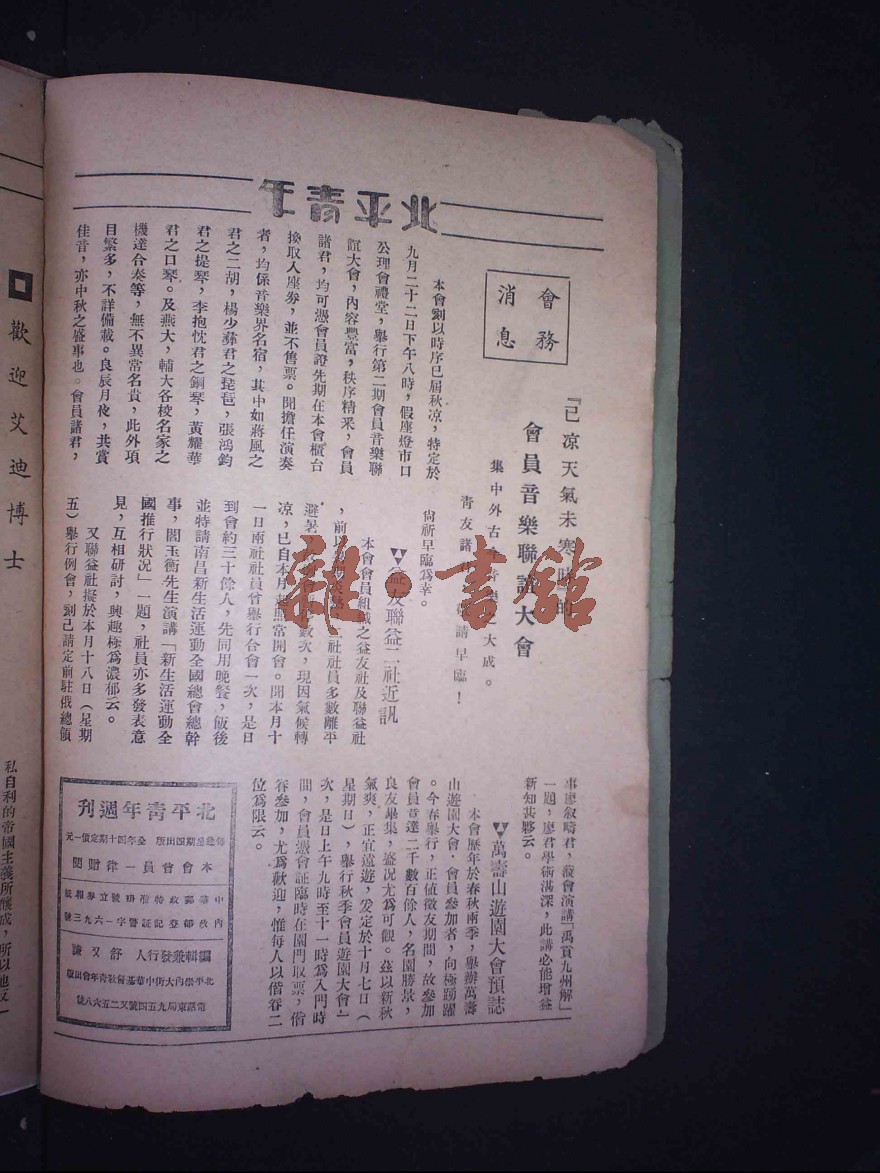 北平青年
會務
消息
『已凉天氣未寒時的
會員音樂聯誼大會
集中外古今音樂之大成。
青友諸君，敬請早臨！
本會劉以時序已屆秋凉，特定於
九月二十二日下午八時，假座燈市口
公理會禮堂，舉行第二期會員音樂聯
誼大會，內容豐富，秩序精釆，會員
諸君，均可憑會員證先期在本會櫃台
換取入座券，並不售票。聞擔任演奏
者，均係音樂界名宿，其中如蔣風之
君之二胡，楊少彝君之琵琶，張鴻鈞
君之提琴，李抱忱君之鋼琴，黃耀華
君之口琴。及燕大，輔大各校名家之
機達合奏等，無不異常名貴，此外項
目繁多，不詳備載。良辰月夜，共賞
佳音，亦中秋之盛事也。會員諸君，
尙祈早臨爲幸。
益友聯益二社近訊
本會會員組織之益友社及聯益社
，前以 社社員多數離平
避暑， 數次，現因氣候轉
凉，已自本月起照常開會。聞本月十
一日兩社社員曾舉行合會一次，是日
到會約三十餘人，先同用晚餐，飯後
並特請南昌新生活運動全國總會總幹
事，閻玉衡先生演講「新生活運動全
國推行狀况」一題，社員亦多發表意
見，互相研討，興趣極爲濃郁云。
又聯益社擬於本月十八日（星期
五）舉行例會，劉已請定前駐俄總領
事廖叙疇君，蒞會演講「禹貢九州解」
一題，廖君學術湛深，此講必能增益
新知甚夥云。
萬壽山遊園大會預誌
本會歷年於春秋兩季，舉辦萬壽
山遊園大會，會員參加者，向極踴躍
。今春舉行，正値徵友期間，故參加
會員竟達二千數百餘人，名園勝景，
良友畢集，盛况尤爲可觀。茲以新秋
氣爽，正宜遠遊，爰定於十月七日（
星期日），舉行秋季會員遊園大會一
次，是日上午九時至十一時爲入門時
間，會員憑會証臨時在園門取票，偕
眷參加，尤爲歡迎，惟每人以偕眷二
位爲限云。
北平青年週刊
每逢星期四出版 全年四十期定價一元
本會會員一律贈閱
中華郵政特准掛號立券報紙
內政部登記証警字一六九三號
編輯兼發行人 舒又謙
北平崇內大街中華基督敎靑年會出版
電話東局九五四號又二五六八號
歡迎艾迪博士
私自利的帝國主義所釀成，所以他又一
雜·書館